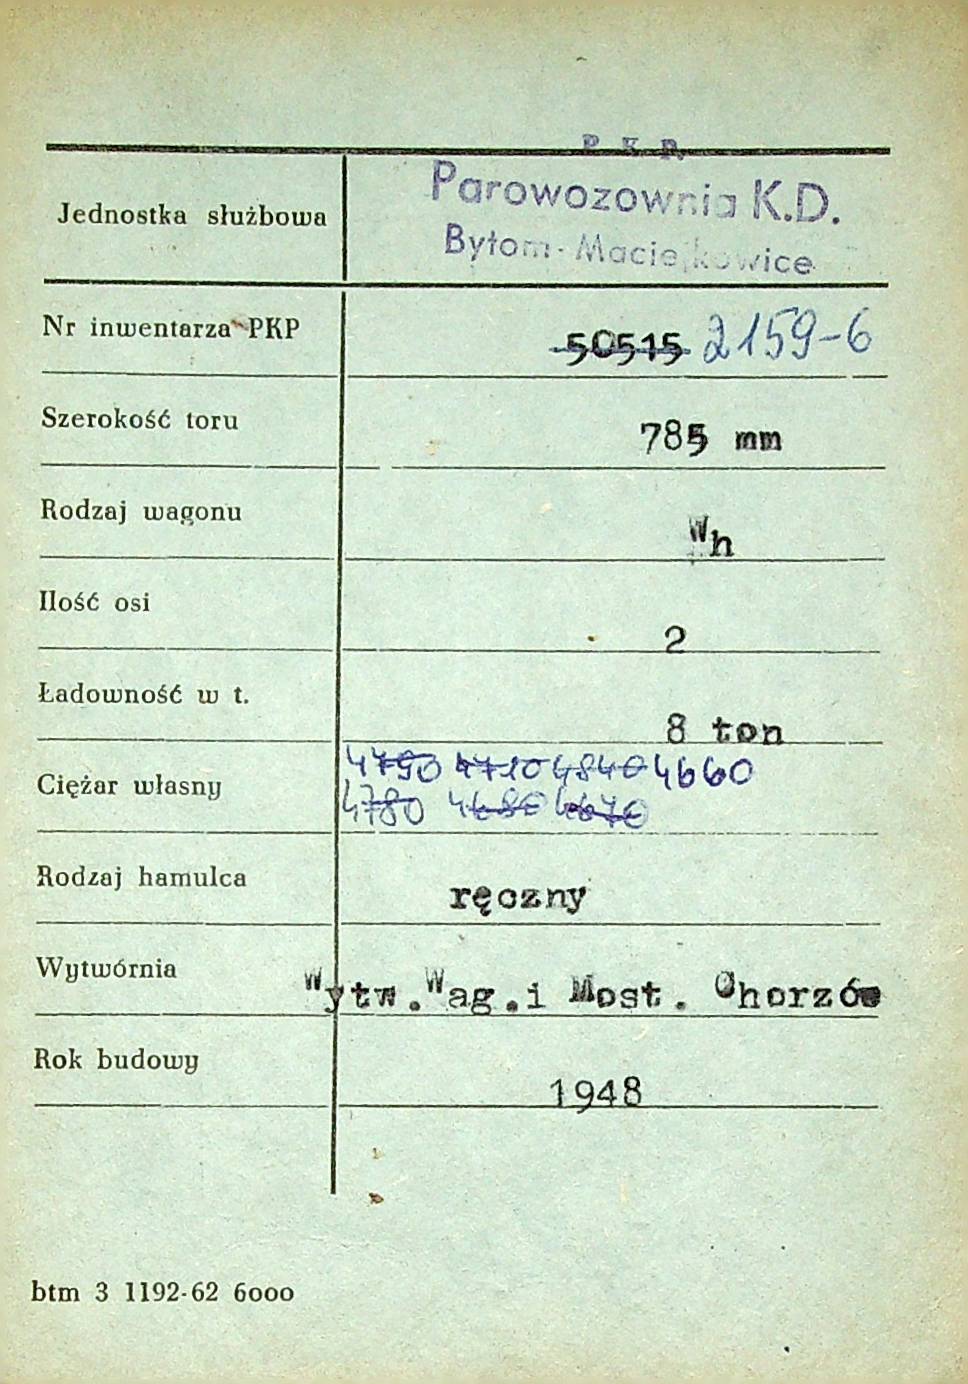 P.K.P.
Jednostka służbowa Parowozownia K.D.
Bytom-Maciejkowice
Nr inwentarza PKP 50515 2159-6
Szerokość toru 785 mm
Rodzaj wagonu Wh
Ilość osi 2
Ładowność w t. 8 ton
Ciężar własny 4790 4710 4840 4660
4780 4680 4670
Rodzaj hamulca ręczny
Wytwórnia Wytw.Wag.i Most. Chorzów
Rok budowy 1948
btm 3 1192-62 6000